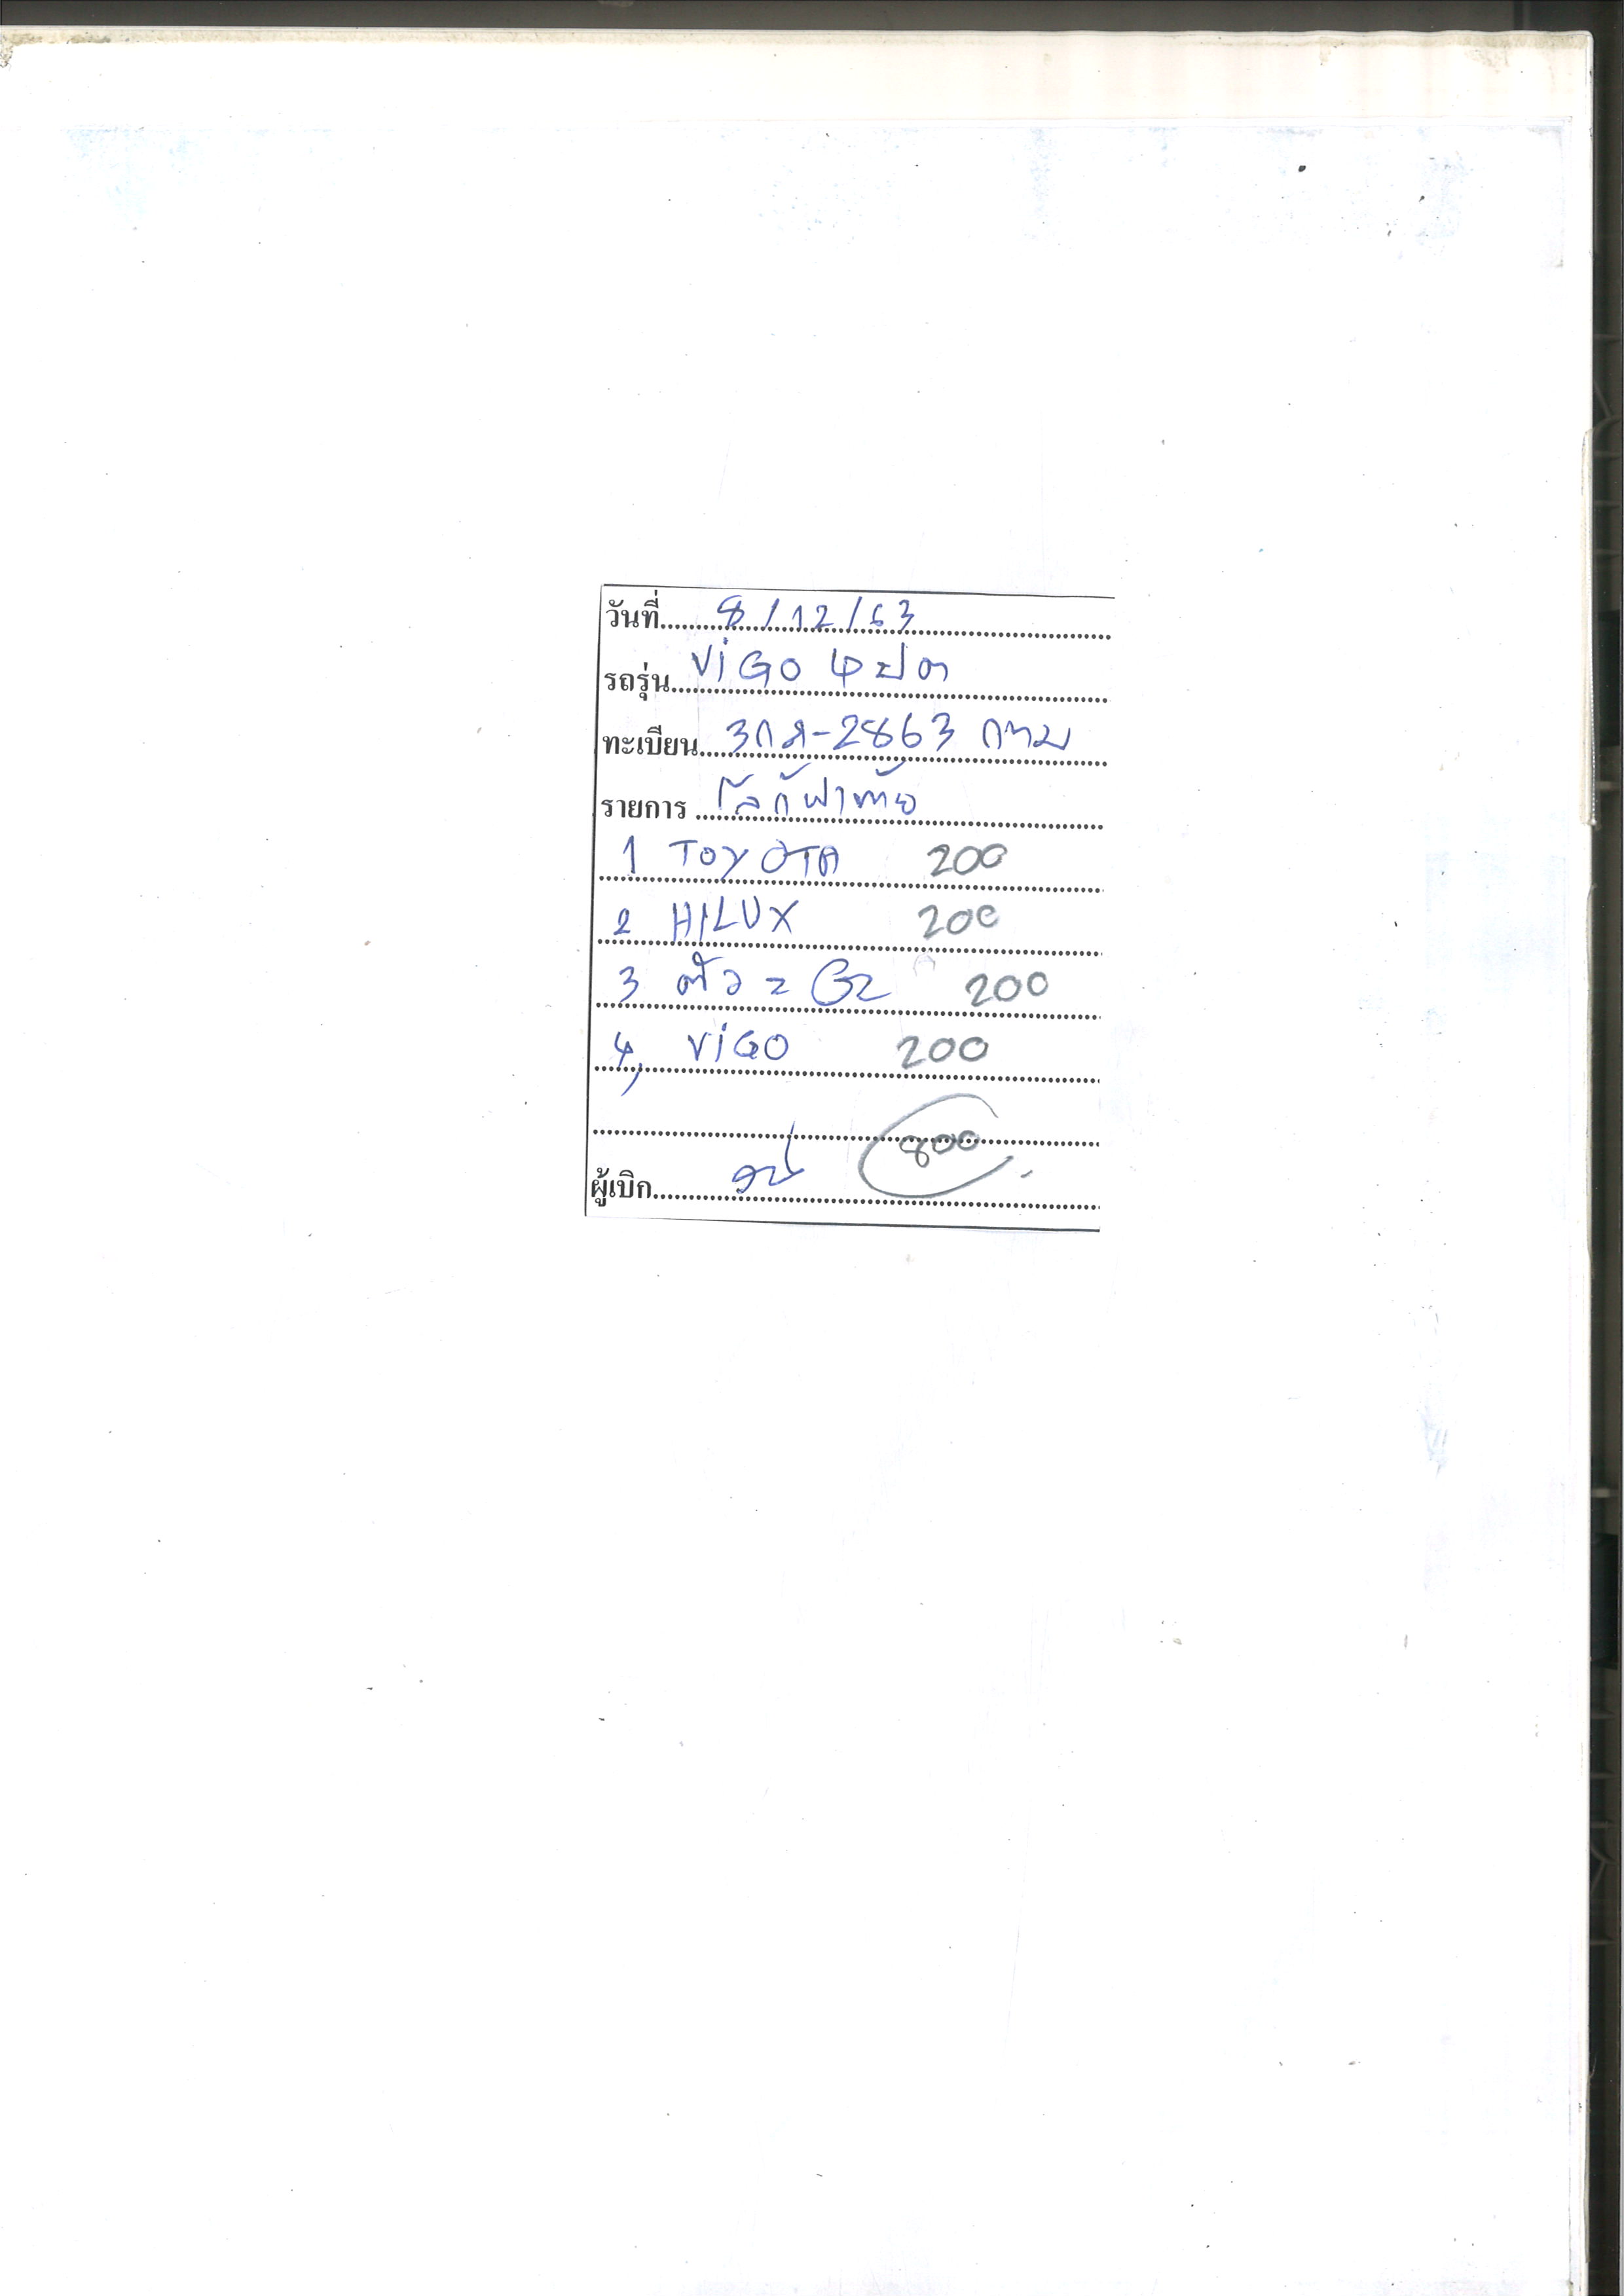 วันที่ 8/12/63
รถรุ่น ViGO 4 ปต
ทะเบียน 3กส-2863 กทม
รายการ โลโก้ฝาท้าย
1 TOYOTA 200
2 HILUX 200
3 ตัว = G2 200
4, ViGO 200
800
ผู้เบิก